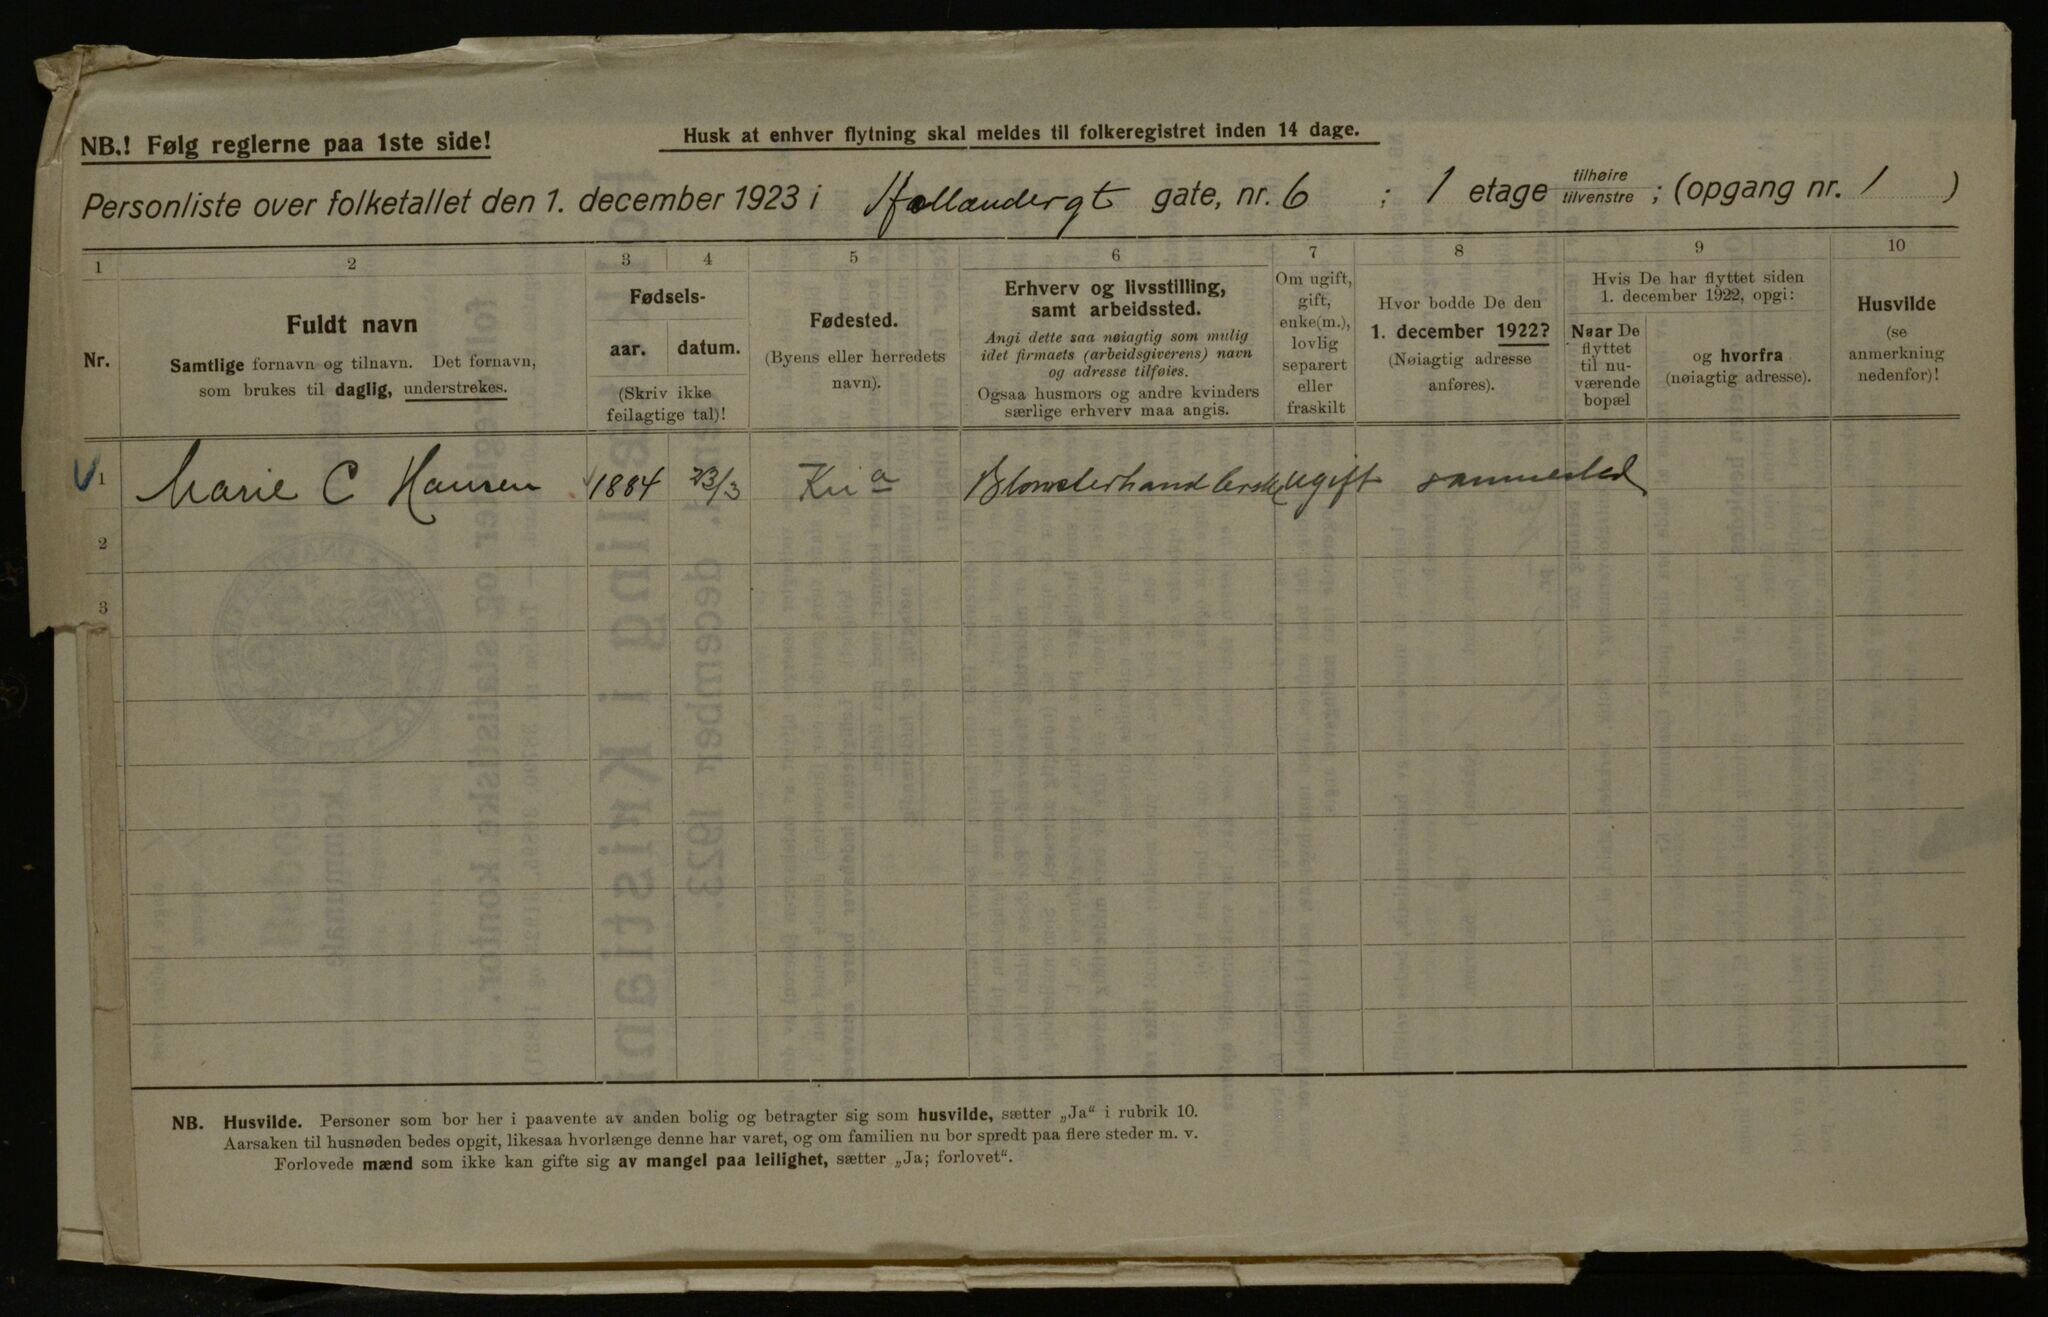 NB.! Følg reglerne paa 1ste side!
Husk at enhver flytning skal meldes til folkeregistret inden 14 dage.
Personliste over folketallet den 1. december 1923 i Hollandergt gate, nr. 6 ; 1 etage tilhøire tilvenstre ; (opgang nr. 1 )
1 2 3 4 5 6 7 8 9 10
Nr.
Fuldt navn
Samtlige fornavn og tilnavn. Det fornavn,
som brukes til daglig, understrekes.
Fødsels-
aar. datum.
(Skriv ikke
feilagtige tal)!
Fødested.
(Byens eller herredets
navn).
Erhverv og livsstilling,
samt arbeidssted.
Angi dette saa nøiagtig som mulig
idet firmaets (arbeidsgiverens) navn
og adresse tilføies.
Ogsaa husmors og andre kvinders
særlige erhverv maa angis.
Om ugift,
gift,
enke(m.),
lovlig
separert
eller
fraskilt
Hvor bodde De den
1. december 1922?
(Nøiagtig adresse
anføres).
Hvis De har flyttet siden
1. december 1922, opgi:
Naar De
flyttet
til nu-
værende
bopæl
og hvorfra
(nøiagtig adresse).
Husvilde
(se
anmerkning
nedenfor)!
1 Marie C Hansen 1884 23/3 Kria Blomsterhandlerske ugift sammested
2
3
NB. Husvilde. Personer som bor her i paavente av anden bolig og betragter sig som husvilde, sætter „Ja“ i rubrik 10.
Aarsaken til husnøden bedes opgit, likesaa hvorlænge denne har varet, og om familien nu bor spredt paa flere steder m. v.
Forlovede mænd som ikke kan gifte sig av mangel paa leilighet, sætter „Ja; forlovet“.